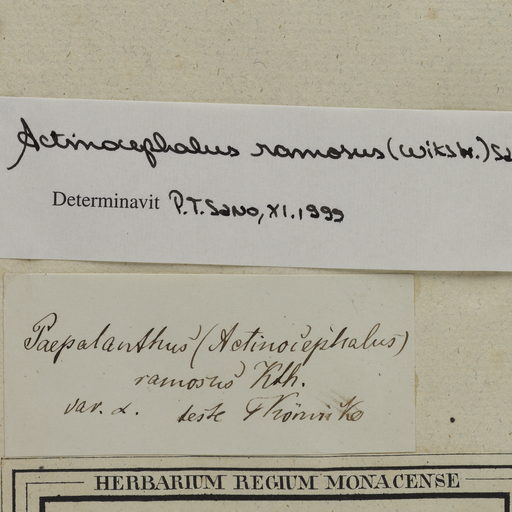 Actinocephalus ramosus (Wikstr.) Sa
Determinavit P.T. Sano, XI.1999
Paepalanthus (Actinocephalus)
ramosus Kth.
var. α. teste Körnicke
HERBARIUM REGIUM MONACENSE